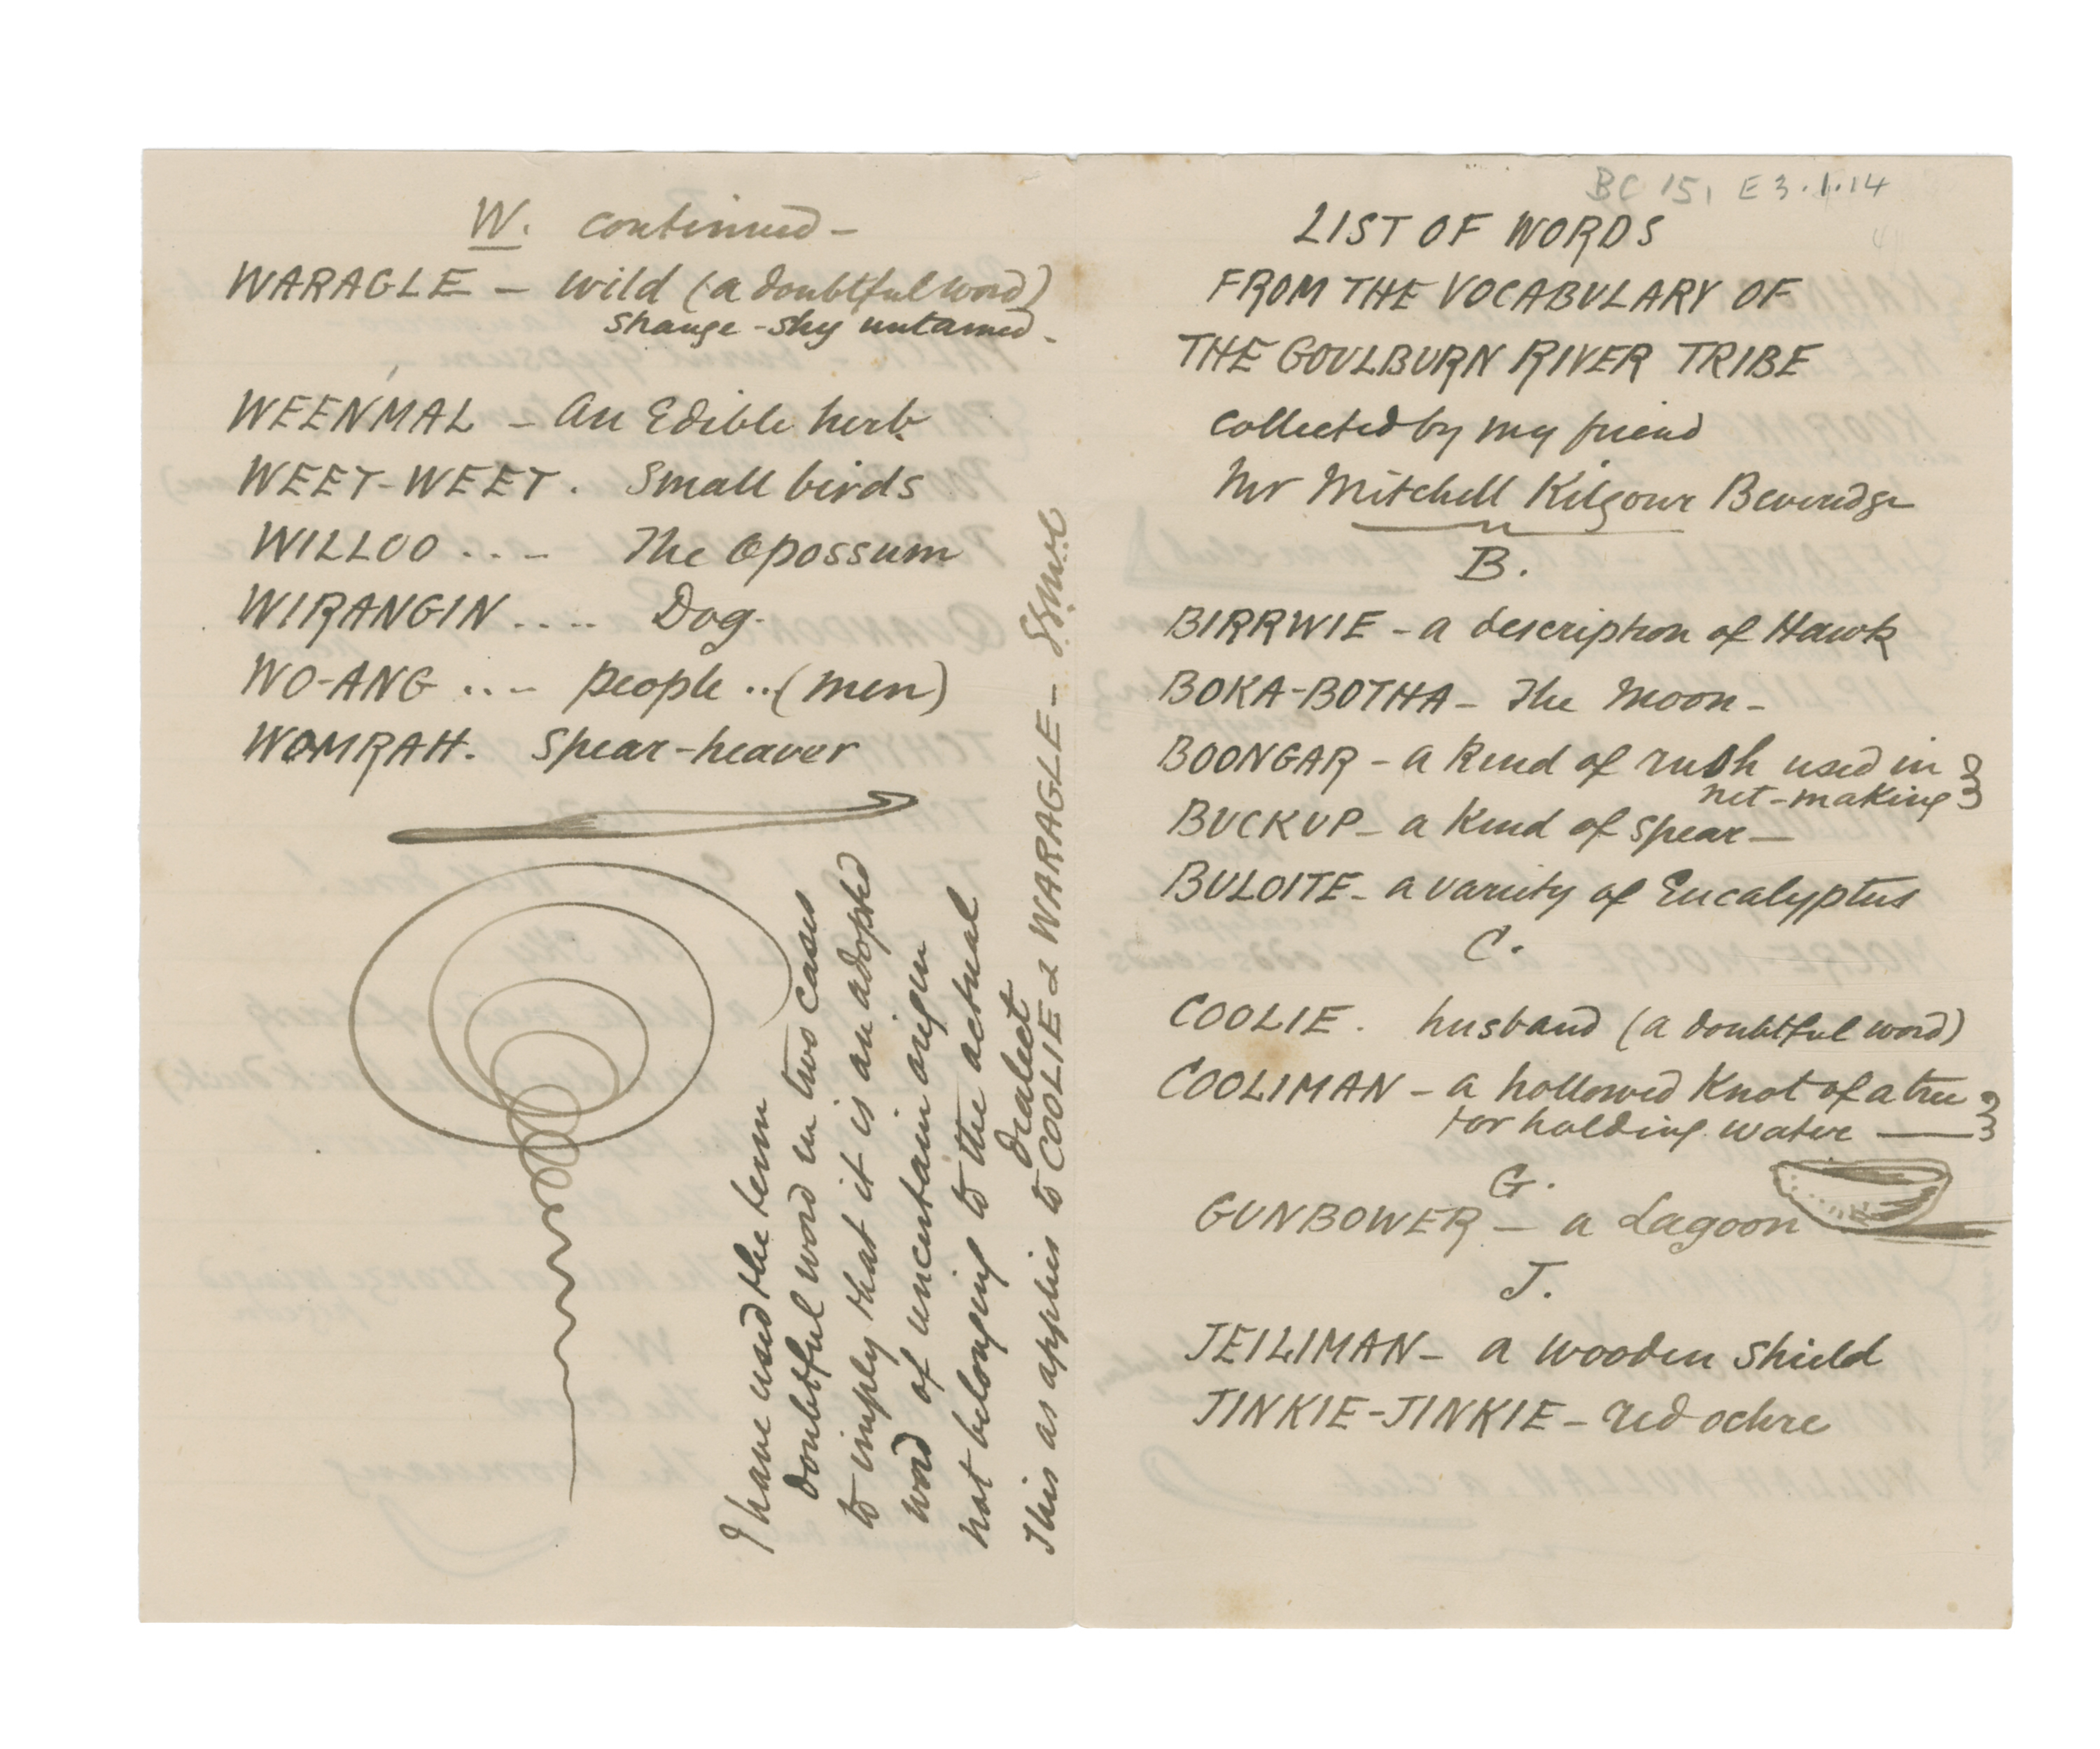 W. continued -
WARAGLE - wild (a doubtful word)
strange - shy untamed -
WEENMAL - An Edible herb.
WEET-WEET . Small birds
WILLOO . . - The Opossum
WIRANGIN .... Dog.
WO-ANG ... - people .. (men)
WOMRAH. Spear-heaver
I have used the term
doubtful word in two cases
to imply that it is an adopted
word of uncertain origin
not belonging to the actual
dialect
This as applies to COOLIE & WARAGLE -
BC 15, E3.1.14
LIST OF WORDS
FROM THE VOCABULARY OF
THE GOULBURN RIVER TRIBE
collected by my friend
Mr Mitchell Kilgour Beveridge
B.
BIRRWIE - a description of Hawk
BOKA-BOTHA - The Moon -
BOONGAR - a kind of rush used in
net-making
BUCKUP - a kind of spear -
BULOITE - a variety of Eucalyptus
C.
COOLIE . husband (a doubtful word)
COOLIMAN - a hollowed Knot of a tree
for holding water -
G.
GUNBOWER - a Lagoon
J.
JEILIMAN - a wooden shield
JINKIE-JINKIE - red ochre